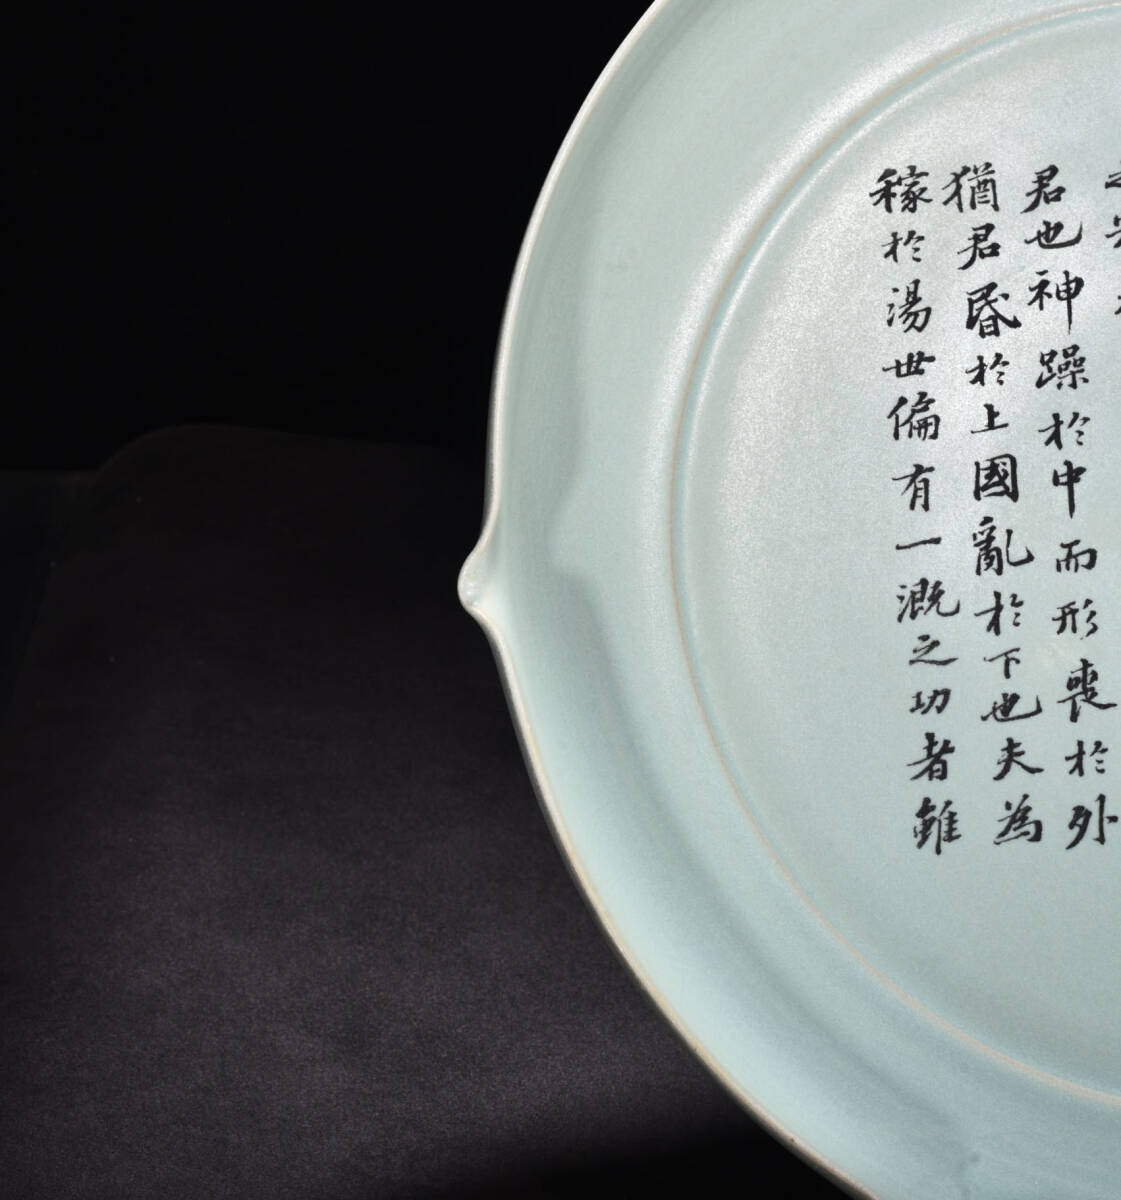 君也神躁於中而形喪於外
猶君昏於上國亂於下也夫為
稼於湯世偏有一溉之功者雖